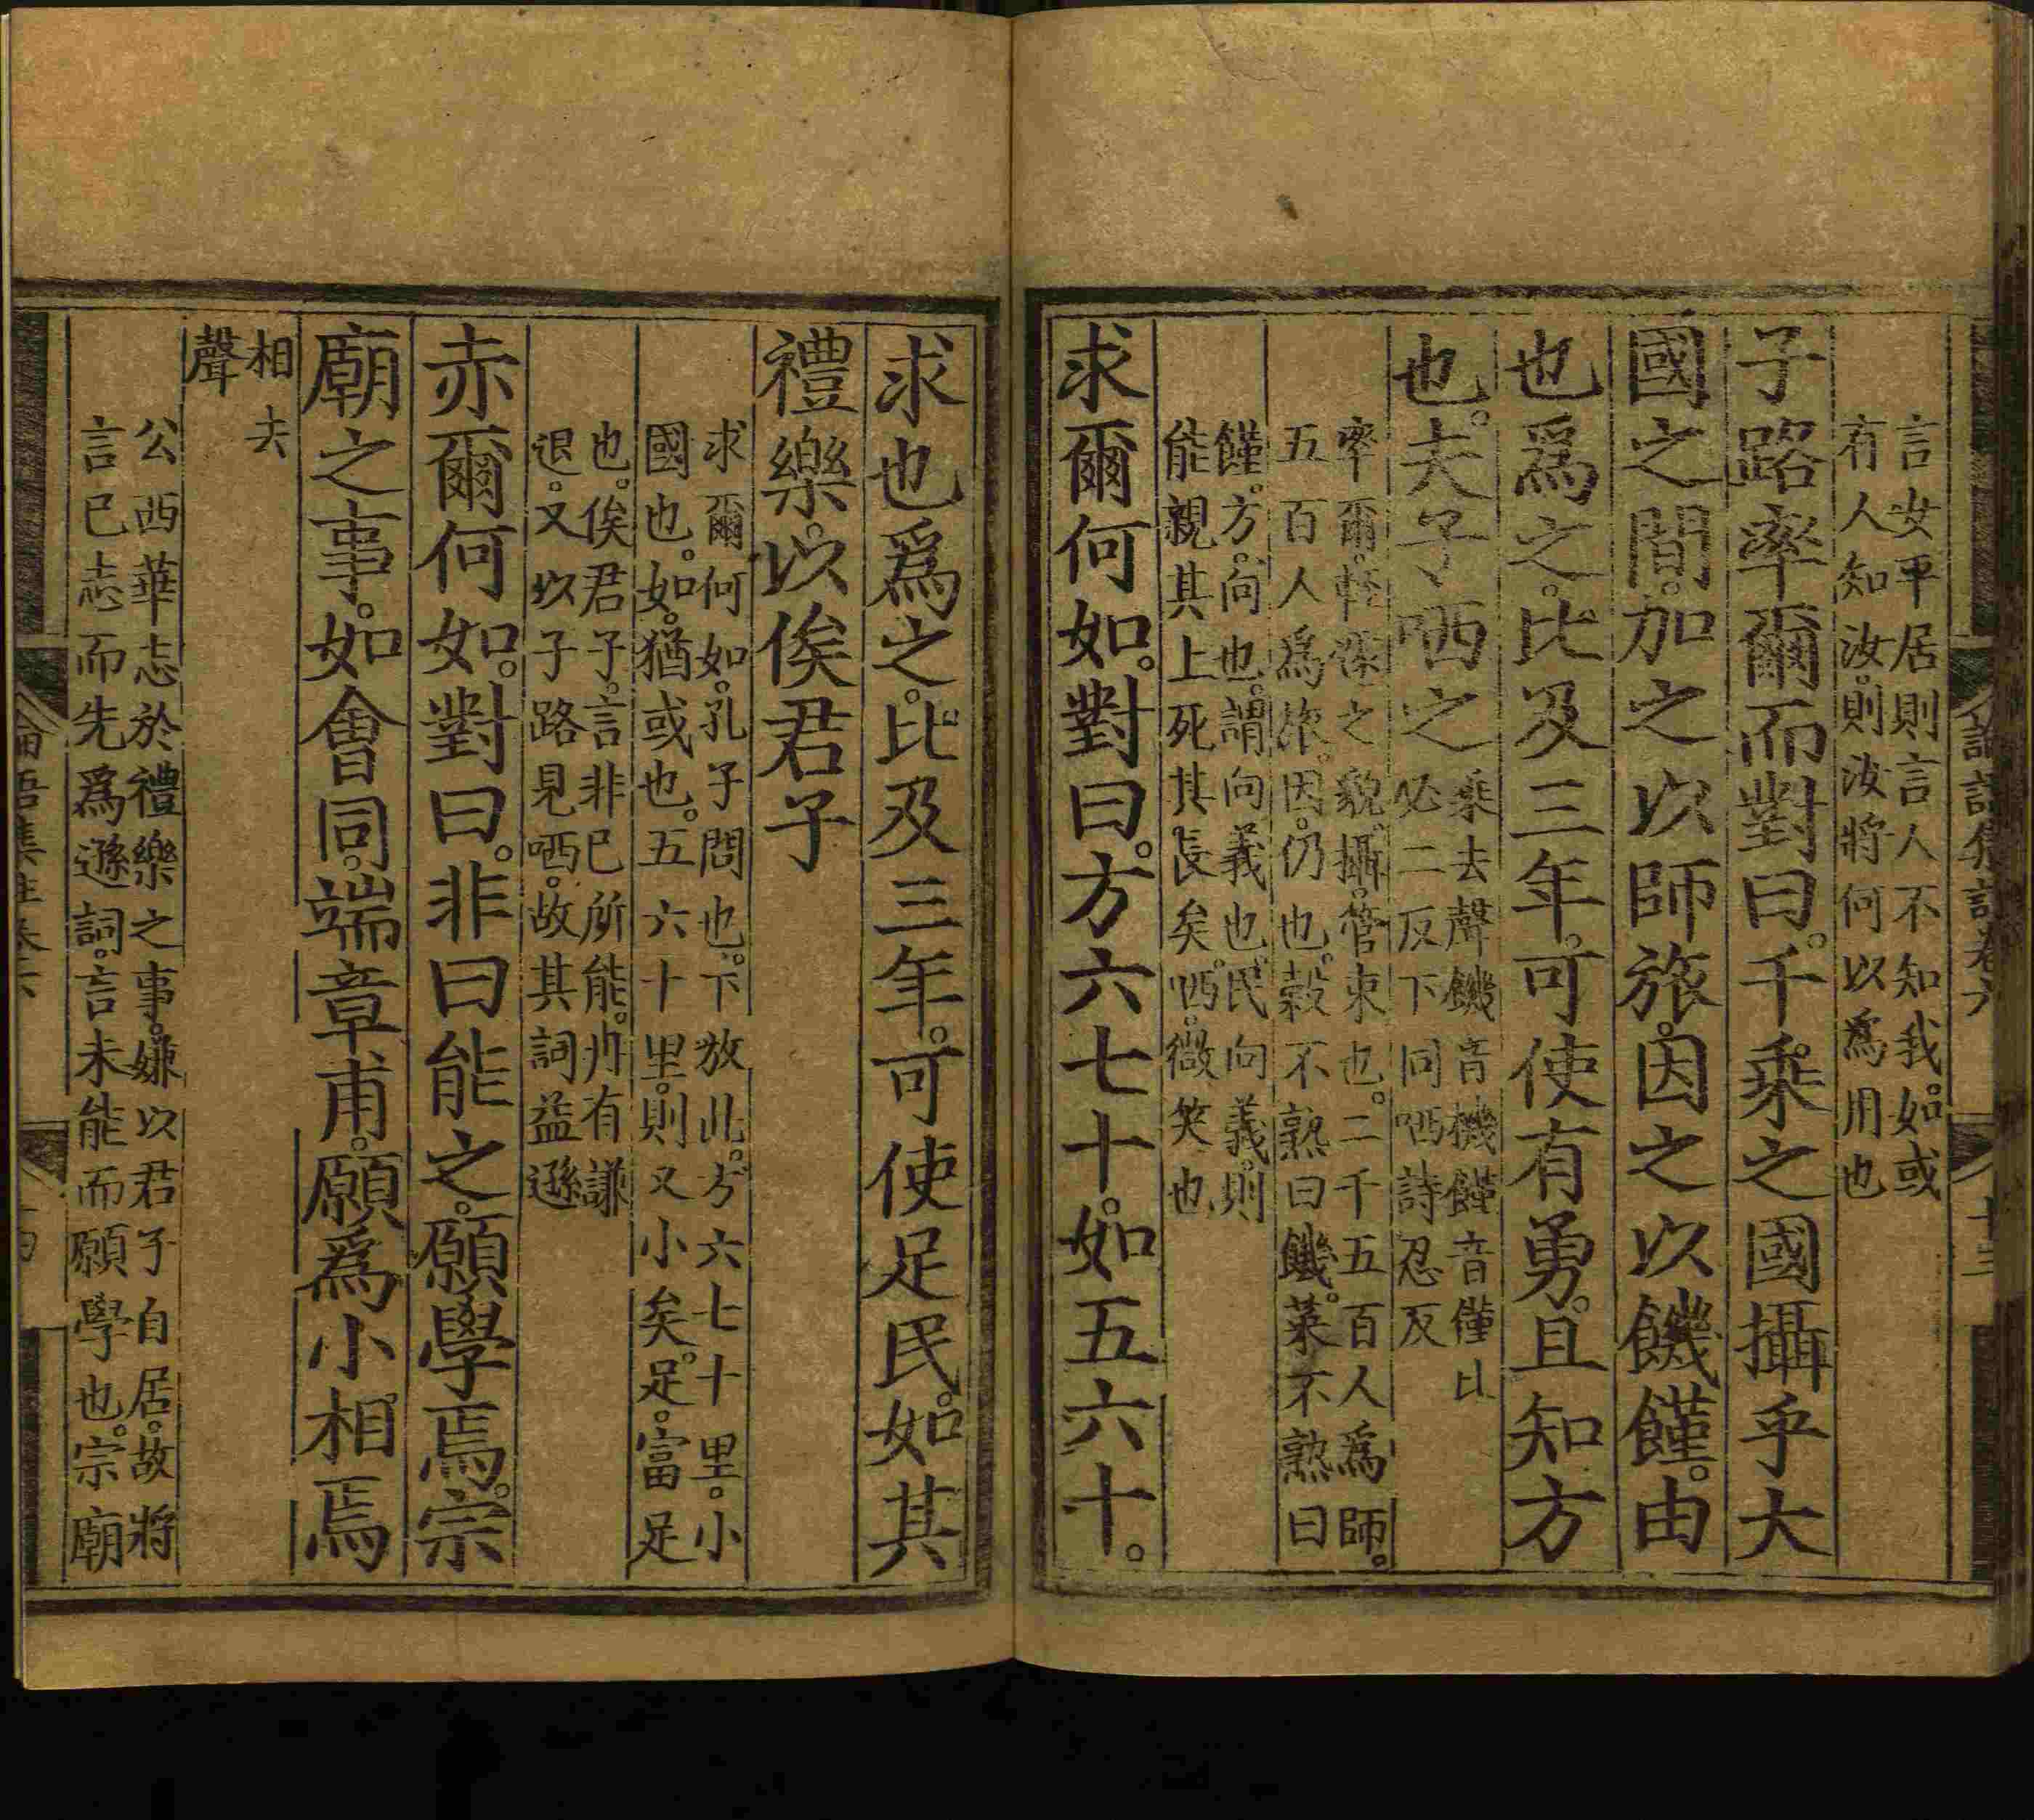 論語集註卷六　十三
言女平居則言人不知我。如或
有人知汝。則汝將何以爲用也
子路率爾而對曰。千乘之國攝乎大
國之間。加之以師旅。因之以饑饉。由
也爲之。比及三年。可使有勇。且知方
也。夫子哂之
乘去聲饑音機饉音僅比
必二反下同哂詩忍反
率爾。輕遽之貌。攝。管束也。二千五百人爲師。
五百人爲旅。因。仍也。穀不熟曰饑。菜不熟曰
饉。方。向也。謂向義也。民向義。則
能親其上死其長矣。哂。微笑也
求爾何如。對曰。方六七十。如五六十。
求也爲之。比及三年。可使足民。如其
禮樂。以俟君子
求爾何如。孔子問也。下放此。方六七十里。小
國也。如。猶或也。五六十里。則又小矣。足。富足
也。俟君子。言非己所能。冉有謙
退。又以子路見哂。故其詞益遜
赤爾何如。對曰。非曰能之。願學焉。宗
廟之事。如會同。端章甫。願爲小相焉
相去
聲
公西華志於禮樂之事。嫌以君子自居。故將
言己志而先爲遜詞。言未能而願學也。宗廟